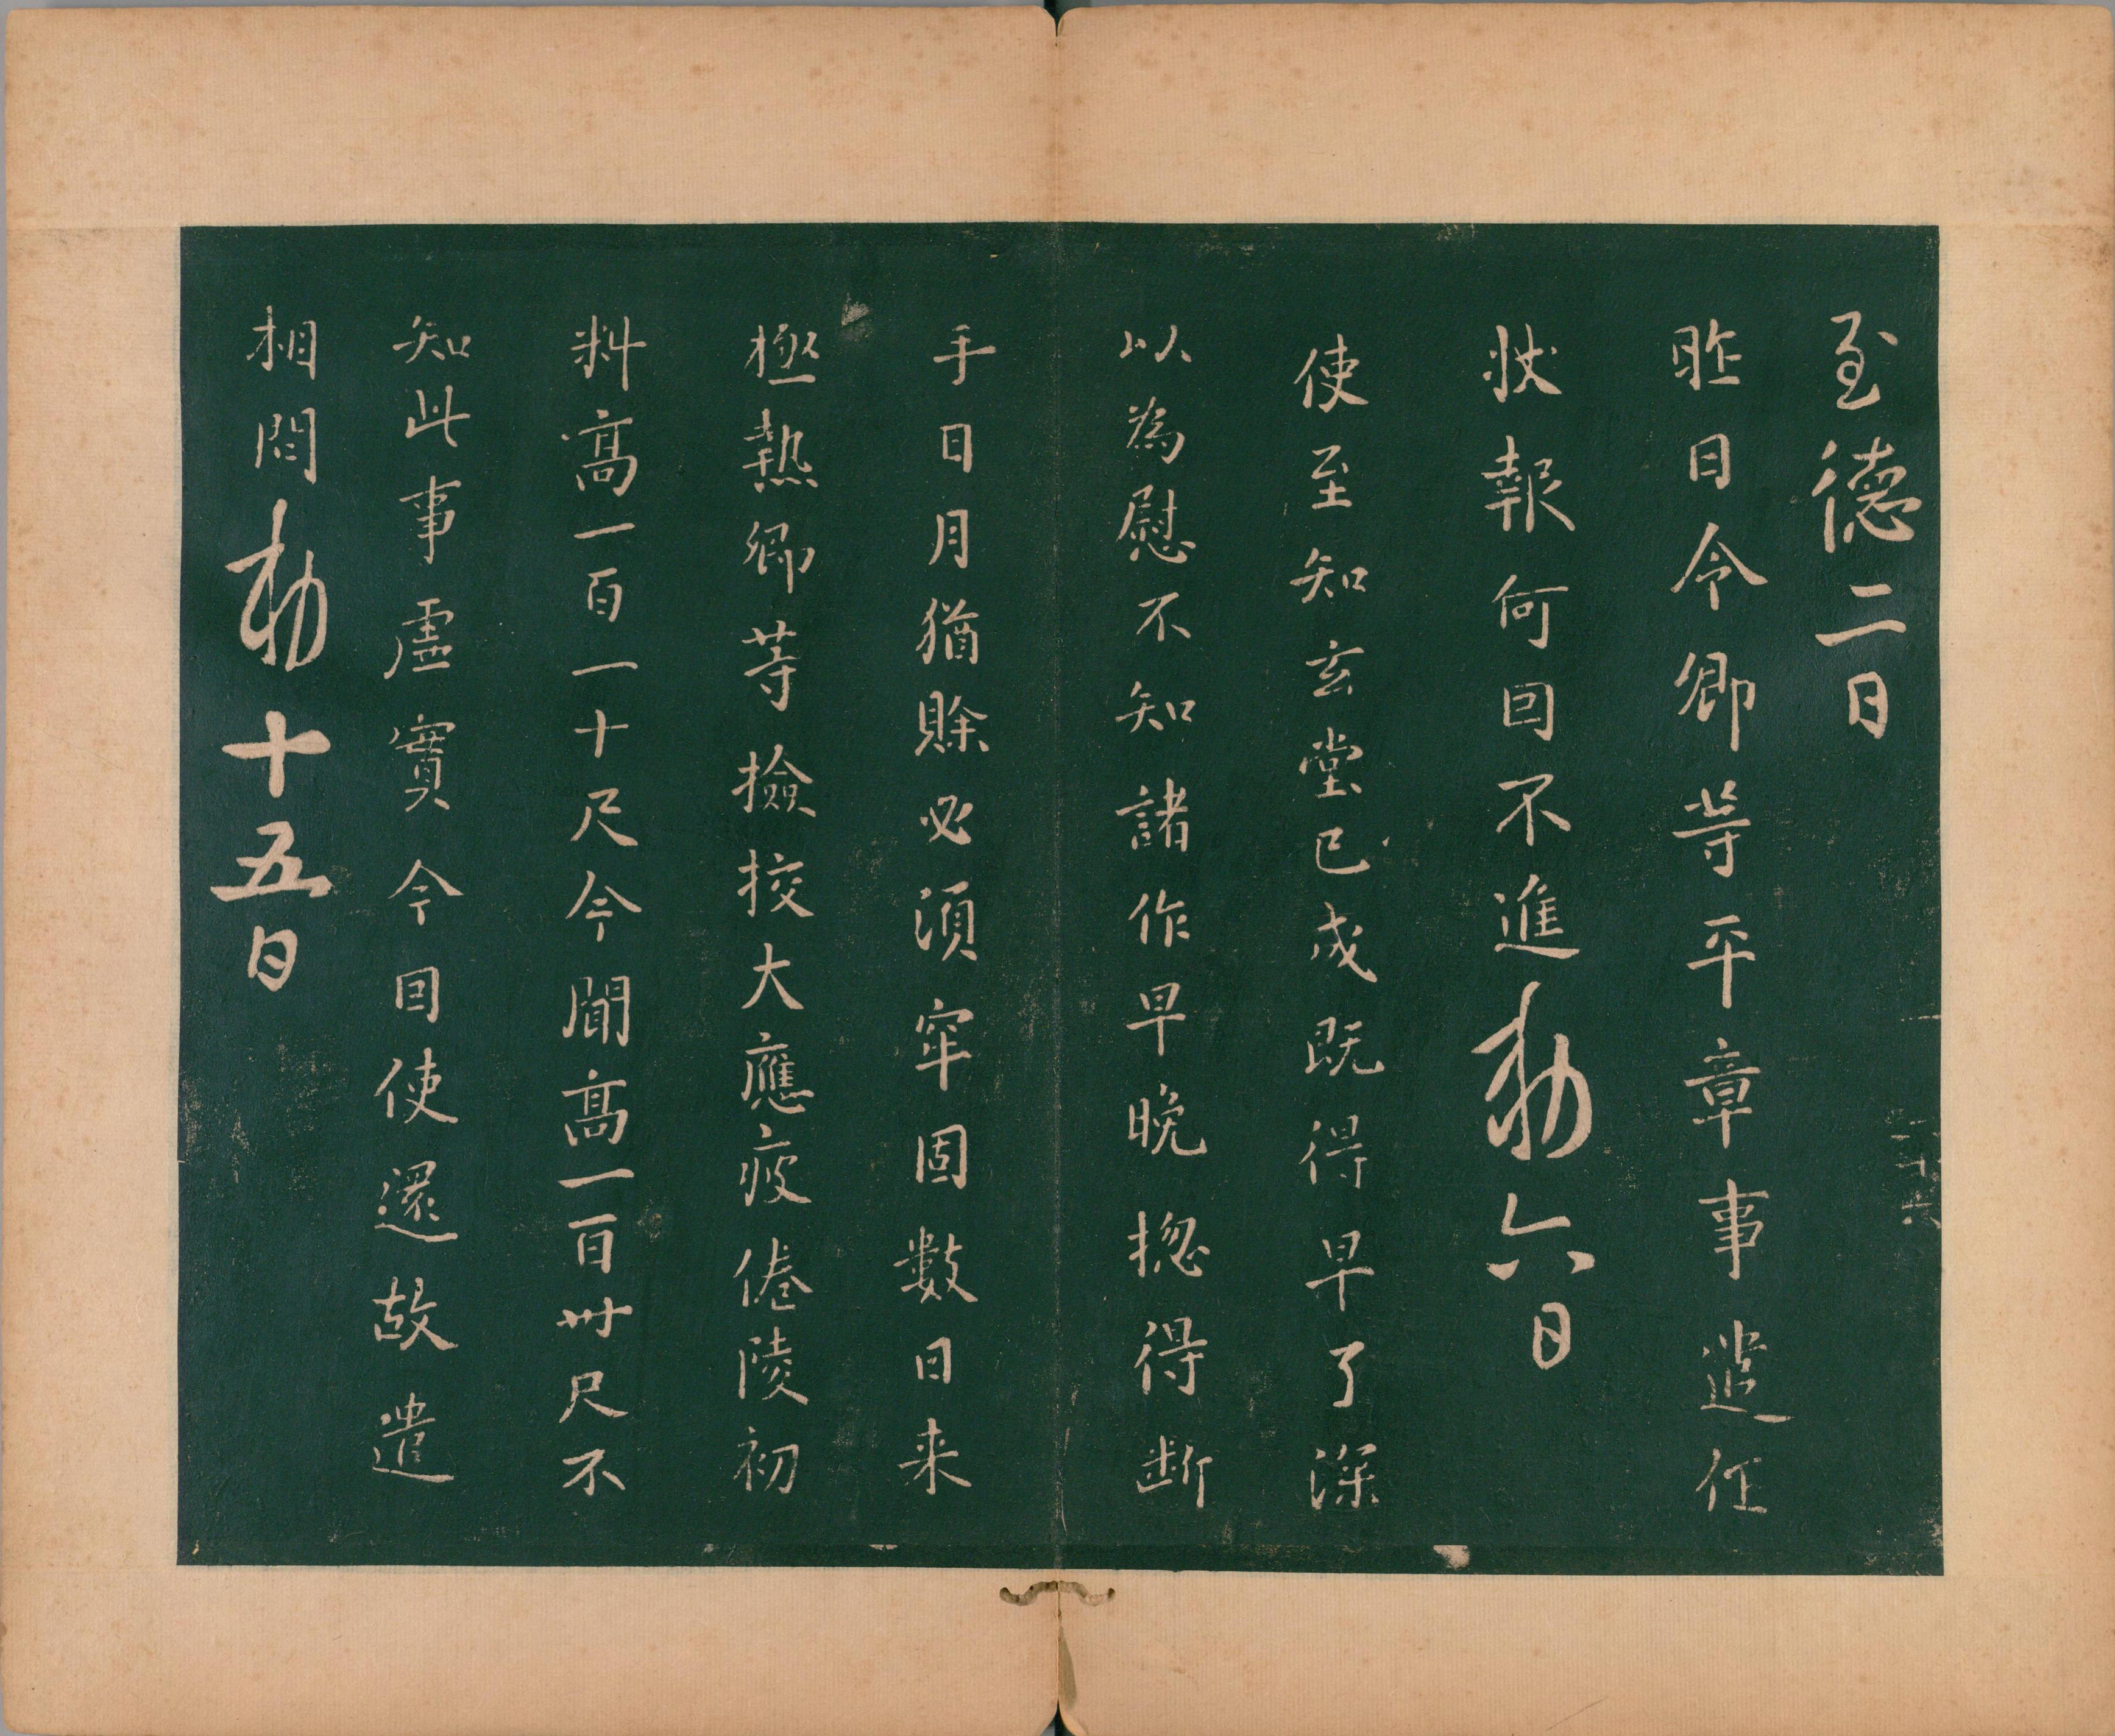 至德二日
昨日令卿等平章事遣任
狀報何回不進勑六日
使至知玄堂已成既得早了深
以為慰不知諸作早晚揔得斷
手日月猶賒必須牢固數日来
極熱卿等撿挍大應疲倦陵初
料高一百一十尺今聞高一百卅尺不
知此事虛實今因使還故遣
相問勑十五日